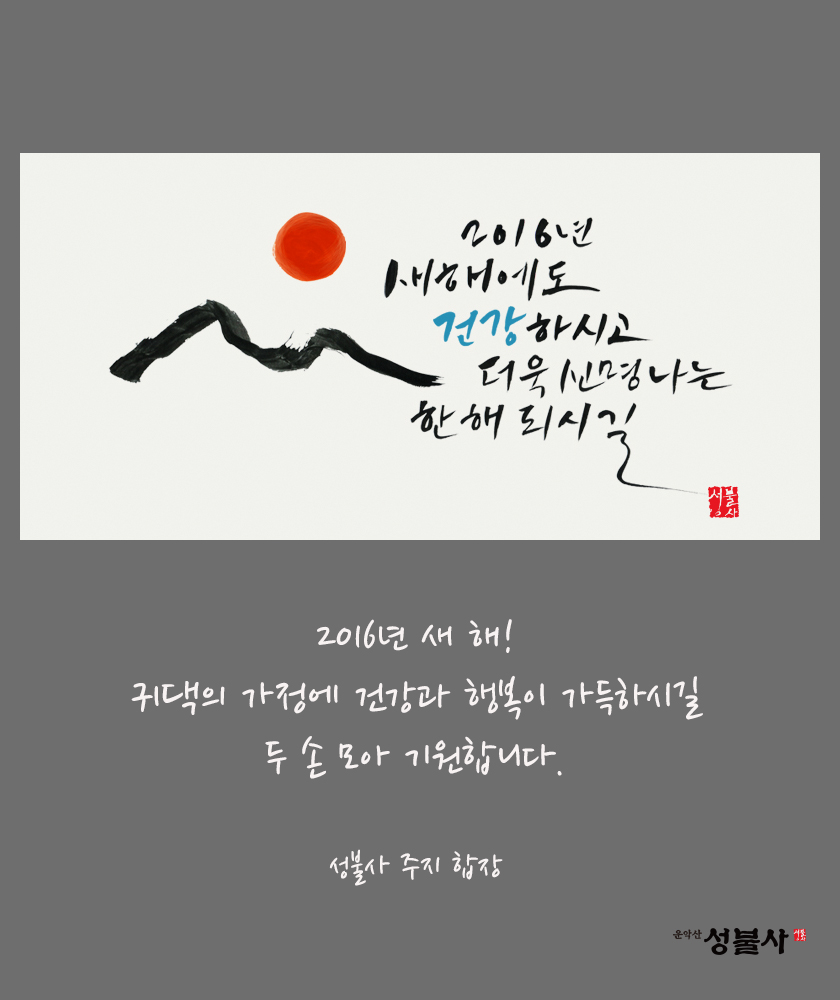 2016년
새해에도
건강하시고
더욱 신명나는
한해 되시길
성불사
2016년 새 해!
귀댁의 가정에 건강과 행복이 가득하시길
두 손 모아 기원합니다.
성불사 주지 합장
운악산 성불사